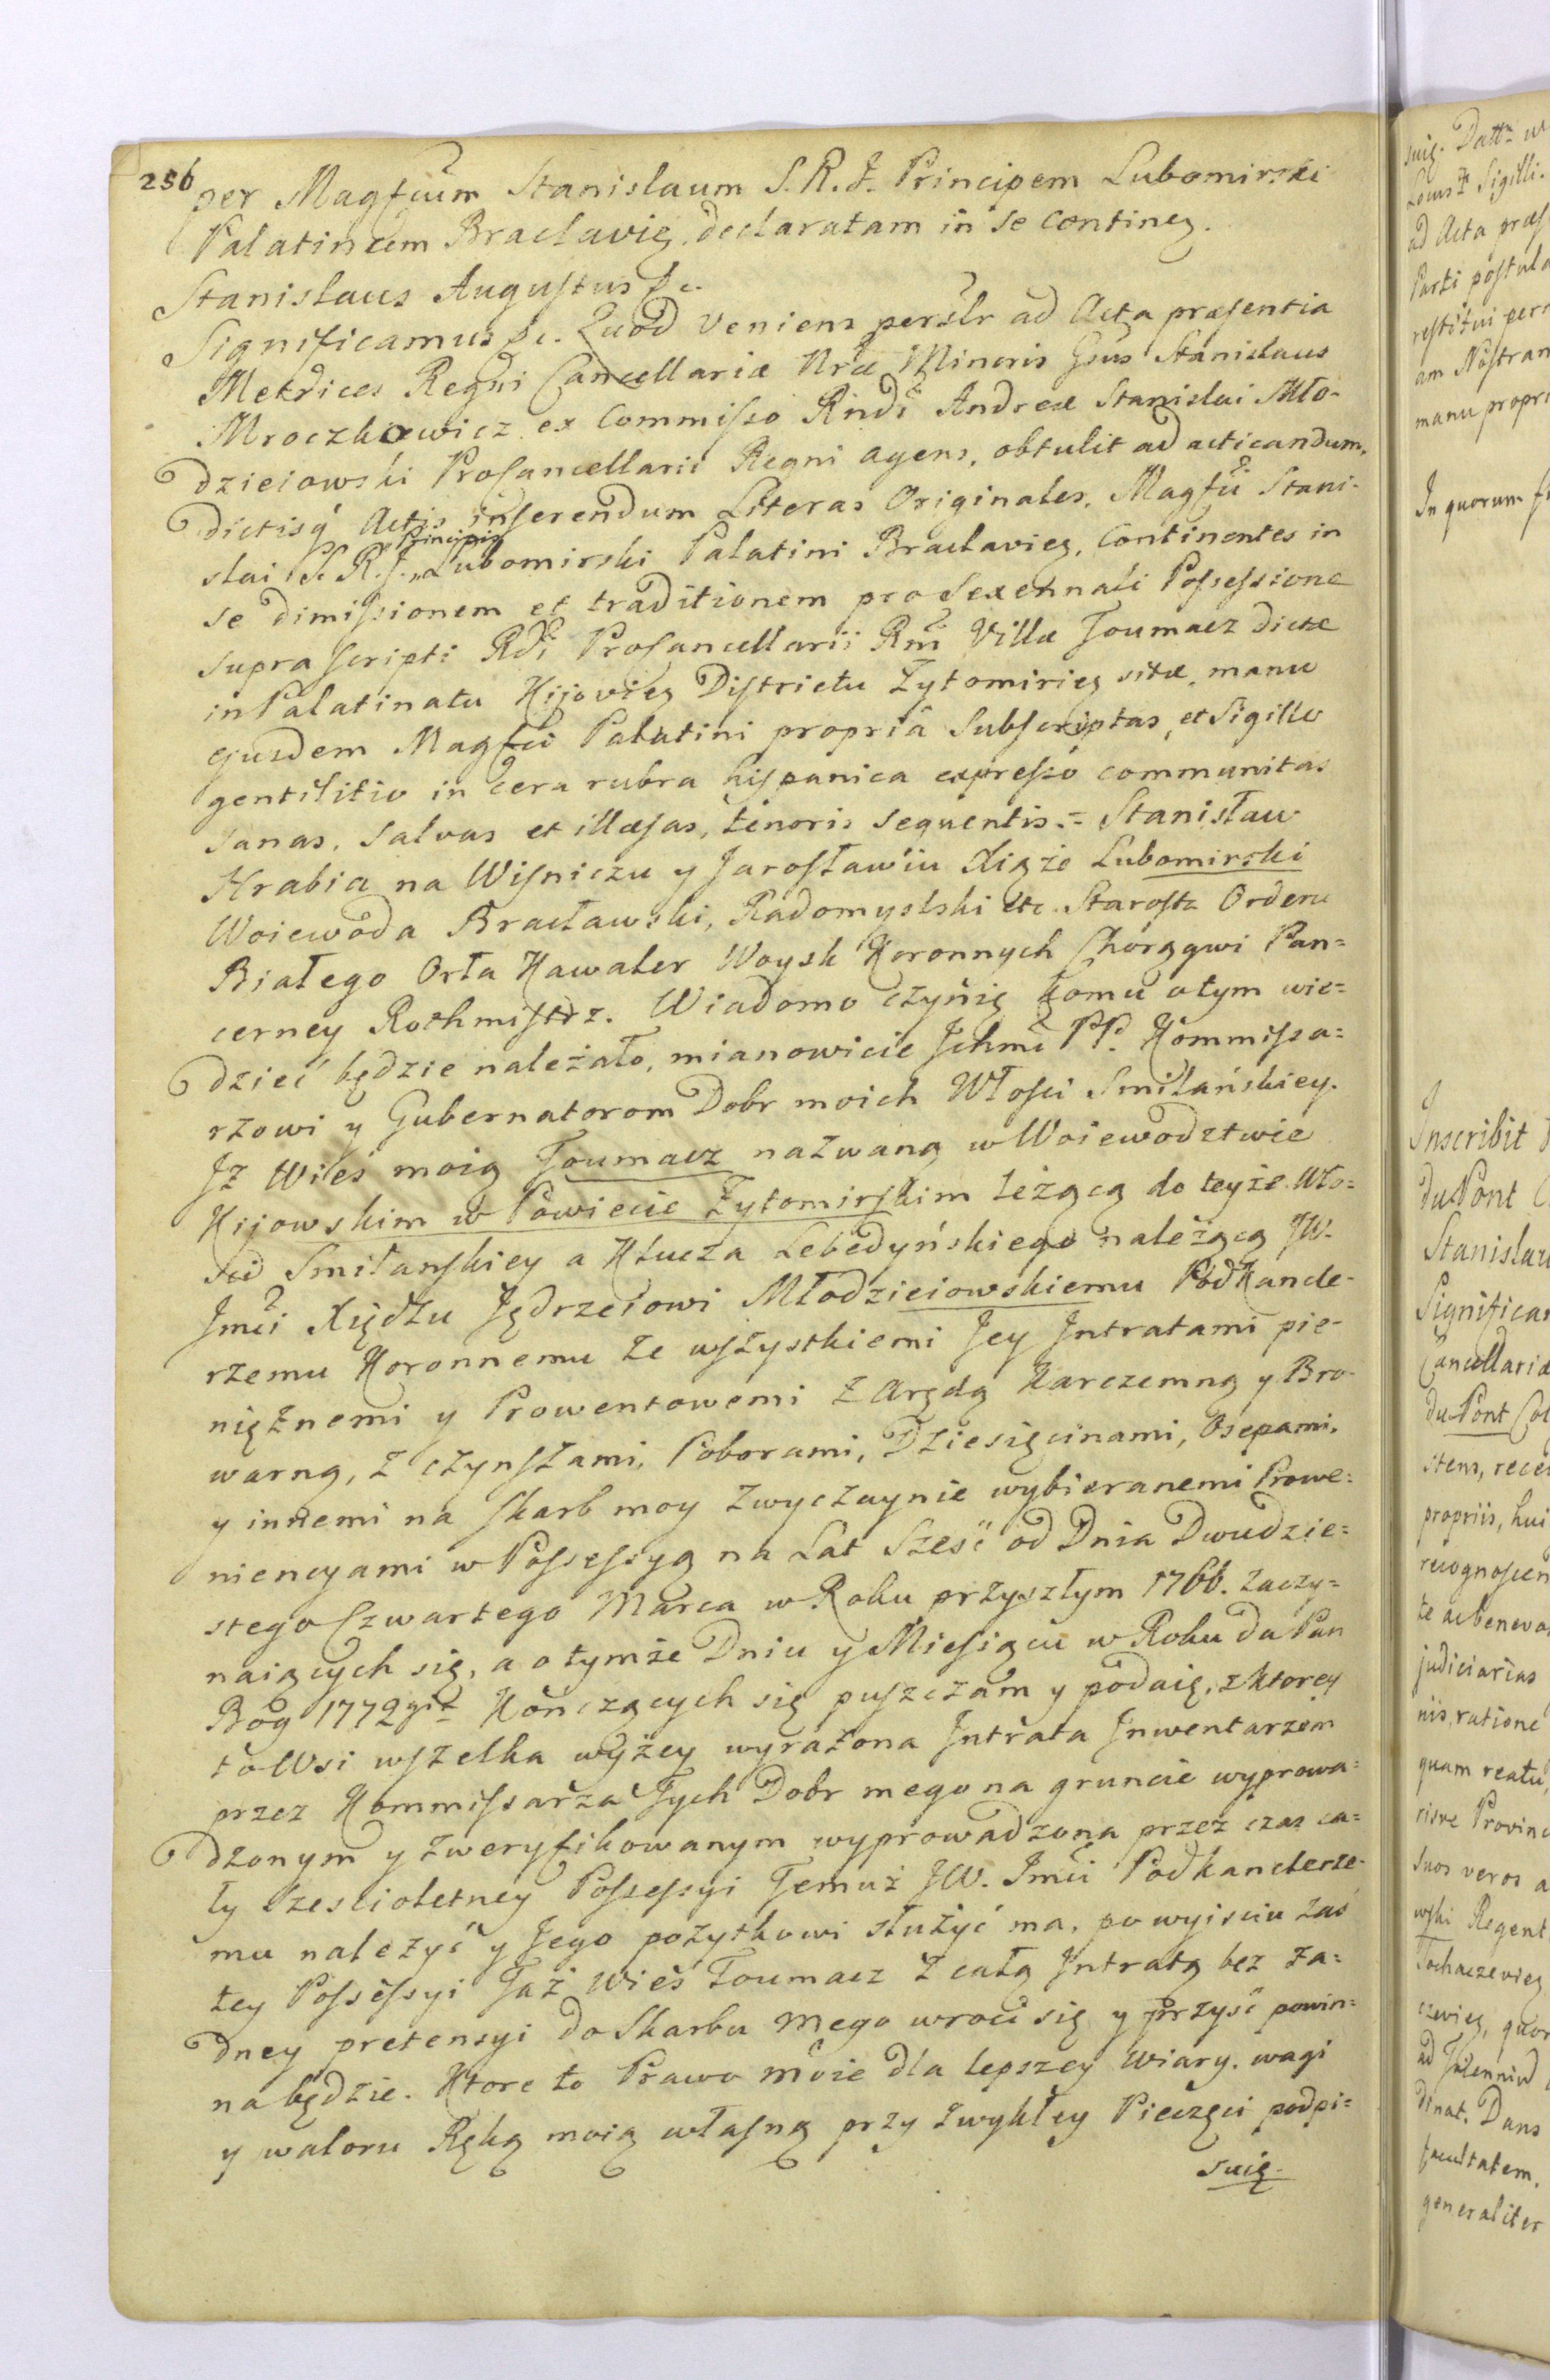 256
per Magfcum Stanislaum S. R. J. Principem Lubomirski
Palatinum Braclavieŋ. declaratam in se contineŋ.
Stanislaus Augustus &c.
Significamus &c. Quod veniens persłr ad Acta præsentia
Metrices Regni Cancellariæ Nræ Minoris Gsus Stanislaus
Mroczkowicz ex Commisso Rndi Andreæ Stanislai Mło-
dzieiowski Procancellarii Regni agens, obtulit ad acticandum,
dictisq́ Actis inserendum Literas Originales, Magfci Stani-
slai S. R. J. Principis Lubomirski Palatini Braclavieŋ, Continentes in
se dimissionem et traditionem pro Sexennali Possessione
supra scripti Rdi Procancellarii Rni Villæ Toumacz dictæ
in Palatinatu Kijovieŋ Districtu Zytomirieŋ sitæ, manu
ejusdem Magfci Palatini propriâ Subscriptas, et Sigillo
gentilitio in cera rubra hispanica expresso communitas
sanas, salvas et illæsas, tenoris sequentis.= Stanisław
Hrabia na Wiśniczu y Jarosławiu Xiąże Lubomirski
Woiewoda Bracławski, Radomyslski etc. Starosta Orderu
Białego Orła Kawaler Woysk Koronnych Chorągwi Pan=
cerney Rothmistrz. Wiadomo czynię komu o tym wie=
dzieć będzie należało, mianowicie Jchmć PP. Kommissa=
rzowi y Gubernatorom Dobr moich Włości Smilańskiey.
Jż Wieś moią Toumacz nazwaną w Woiewodztwie
Kijowskim w Powiecie Zytomirskim leżącą do teyże Wło=
sci Smilanskiey a Klucza Lebedyńskiego należącą JW.
Jmći Xiędzu Jędrzeiowi Młodzieiowskiemu Podkancle-
rzemu Koronnemu ze wszystkiemi Jey Jntratami pie-
niężnemi y Prowentowemi z Arędą Karczemną y Bro-
warną, z czynszami, Poborami, Dziesięcinami, Osepami,
y innemi na Skarb moy zwyczaynie wybieranemi Prowe=
niencyami w Possessyą na Lat Sześć od Dnia Dwudzie=
stego Czwartego Marca w Roku przyszłym 1766. zaczy=
naiących się, a o tymże Dniu y Miesiącu w Roku da Pan
Bóg 1772git Kończących się puszczam y podaię, z ktorey
to Wsi wszelka wyżey wyrażona Jntrata Jnwentarzem
przez Kommissarza Tych Dobr mego na gruncie wyprowa=
dzonym y zweryfikowanym wyprowadzona przez czas ca=
ły Szescioletney Possessyi Temuż JW. Jmći Podkanclerze-
mu należyć y Jego pożytkowi służyć ma, po wyisciu zaś
tey Possessyi Taż Wieś Toumacz z całą Jntratą bez ża=
dney pretensyi do Skarbu mego wroci się y przyść powin=
na będzie. Ktore to Prawo moie dla lepszey wiary, wagi
y waloru Ręką moią własną przy zwykłey Pieczęci podpi=
suię.
suię. Dattm w
Locus Sigilli.
ad Acta præs
Parti postula
restitui per
am Nostram
manu propri
In quorum fi
Inscribit
du Pont
Stanislau
Significa
Cancellariæ
du Pont Co
stens, rece
propriis, hui
recognoscen
te ac benevo
judiciarias
nis, ratione
quam reatu,
risve Provinc
suos veros a
wski Regent
Sochaczevieŋ
czevieŋ, quor
ad Triennid
dinat. Dans
facultatem.
generaliter